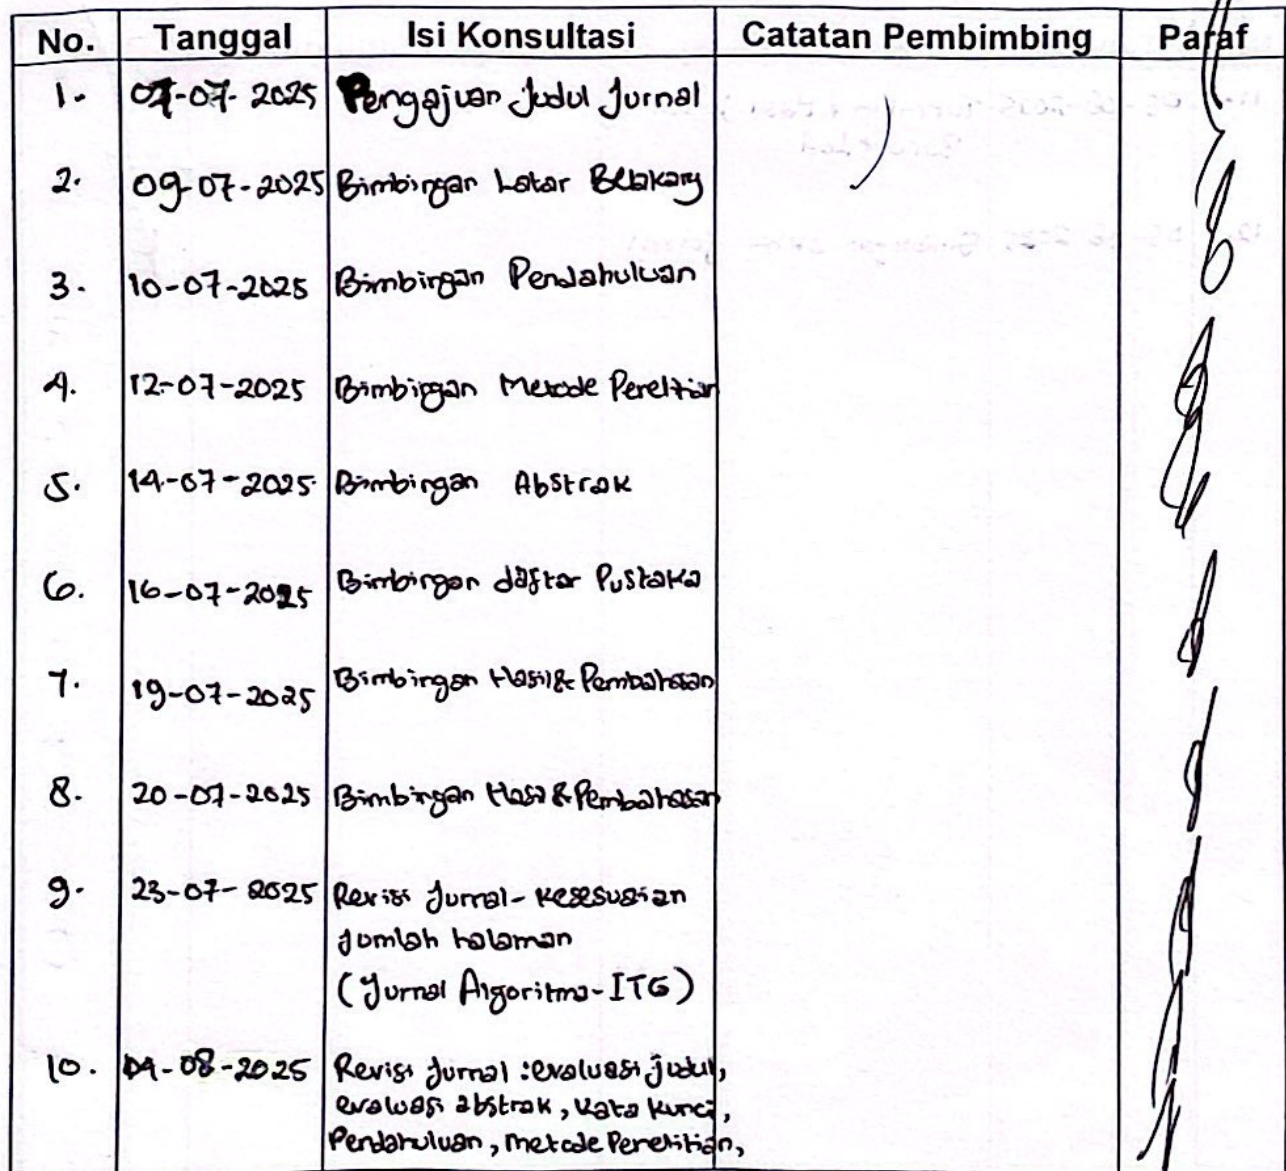 No. Tanggal Isi Konsultasi Catatan Pembimbing Paraf
1. 07-07-2025 Pengajuan Judul Jurnal
2. 09-07-2025 Bimbingan Latar Belakang
3. 10-07-2025 Bimbingan Pendahuluan
4. 12-07-2025 Bimbingan Metode Penelitian
5. 14-07-2025 Bimbingan Abstrak
6. 16-07-2025 Bimbingan daftar Pustaka
7. 19-07-2025 Bimbingan Hasil & Pembahasan
8. 20-07-2025 Bimbingan Hasil & Pembahasan
9. 23-07-2025 Revisi Jurnal - kesesuaian
jumlah halaman
(Jurnal Algoritma-ITG)
10. 04-08-2025 Revisi Jurnal : evaluasi judul,
evaluasi abstrak, kata kunci,
Pendahuluan, metode Penelitian,